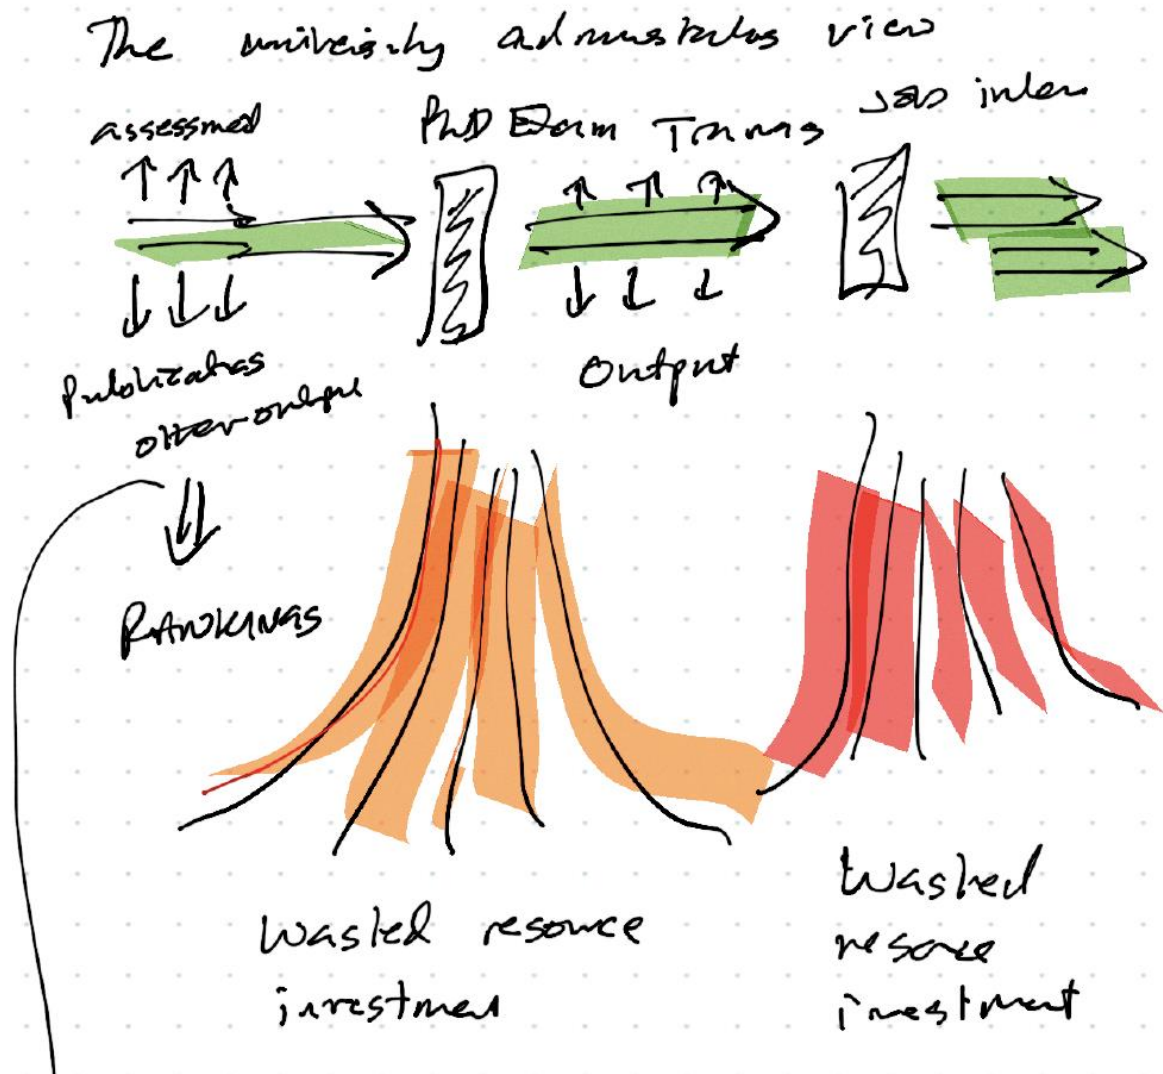 The university administrators view
assessmed
PhD Exam
Job inter
Publications
other output
Output
RANKINGS
Wasted resource
investment
Wasted
resource
investment